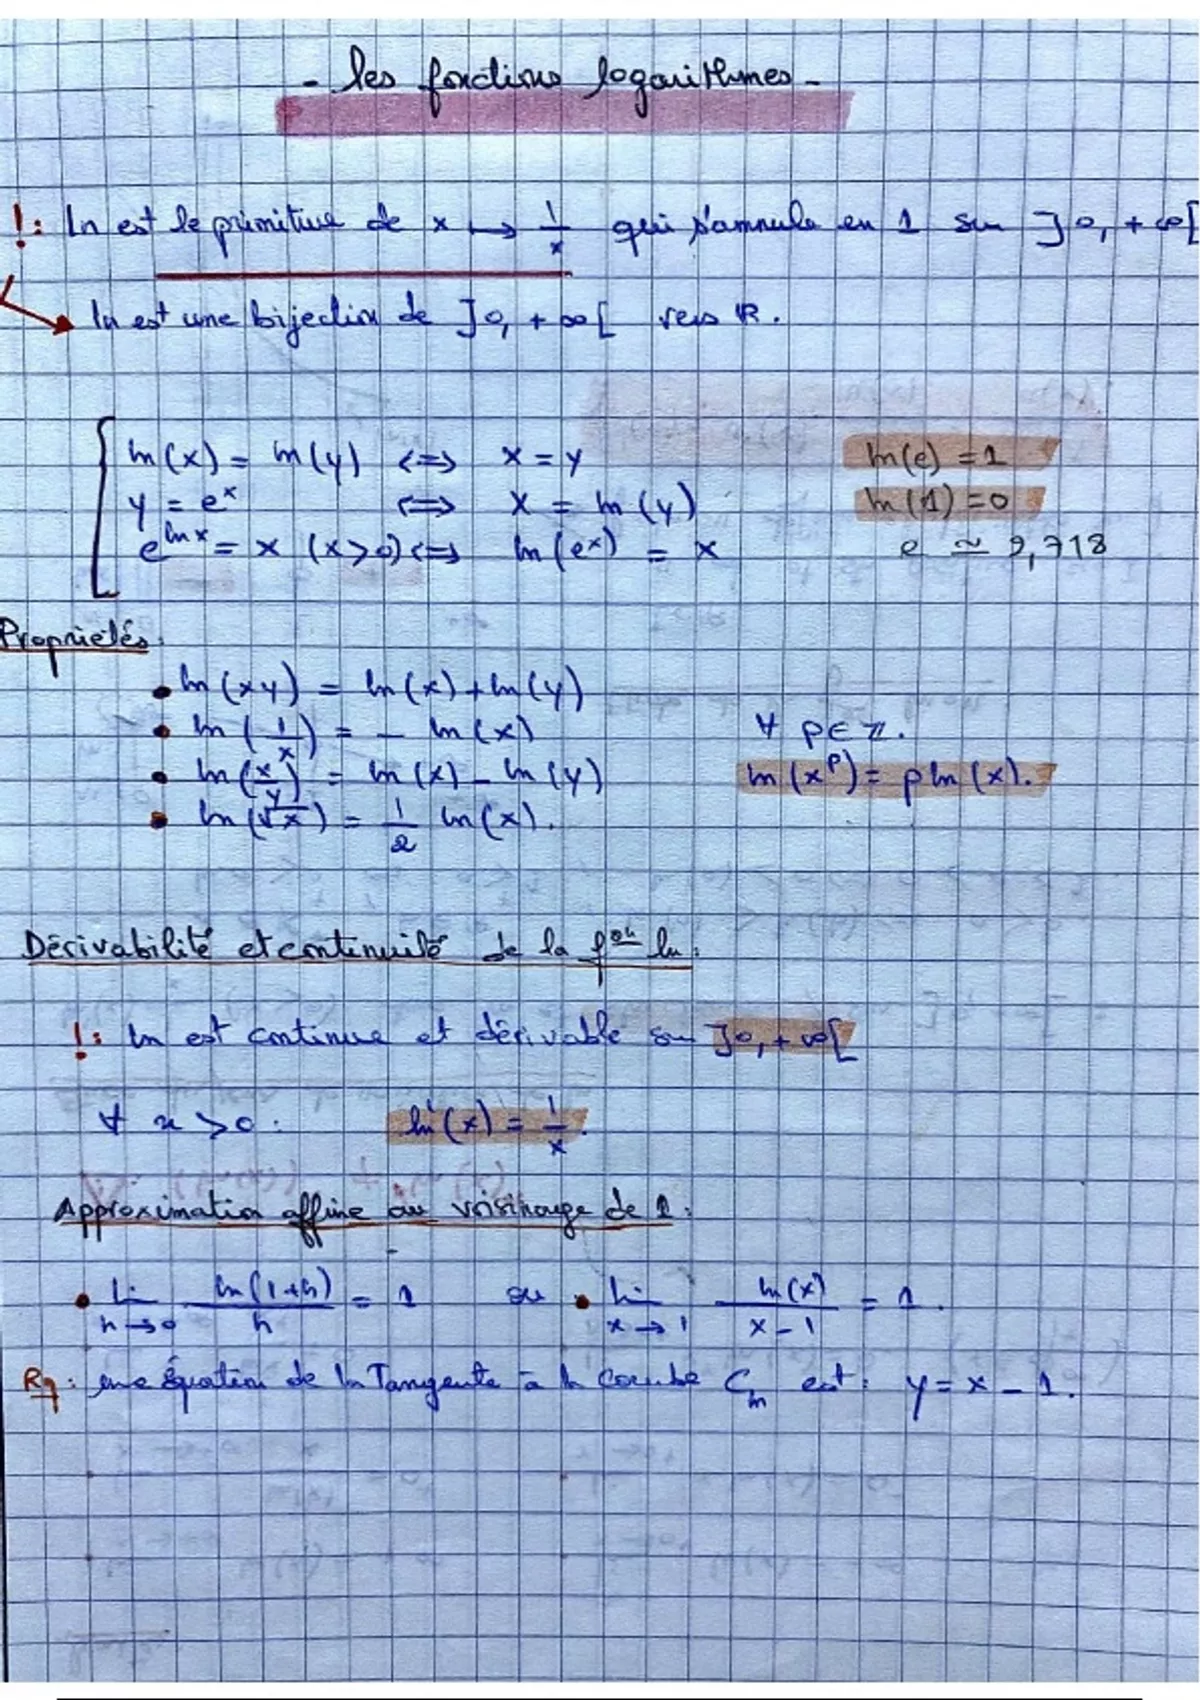 - les fonctions logarithmes -
!: ln est le primitive de x ↦ 1/x qui s'annule en 1 sur ]0, +∞[
ln est une bijection de ]0, +∞[ vers ℝ.
ln(x) = ln(y) <=> x = y ln(e) = 1
y = e^x <=> x = ln(y) ln(1) = 0
e^(ln x) = x (x>0) <=> ln(e^x) = x e ≃ 2,718
Propriétés:
• ln(xy) = ln(x) + ln(y)
• ln(1/x) = - ln(x) ∀ p ∈ ℤ.
• ln(x/y) = ln(x) - ln(y) ln(x^p) = p ln(x).
• ln(√x) = 1/2 ln(x).
Dérivabilité et continuité de la f^on ln:
!: ln est continue et dérivable sur ]0, +∞[
∀ x > 0: ln'(x) = 1/x.
Approximation affine au voisinage de 1:
• lim h→0 ln(1+h)/h = 1 ou • lim x→1 ln(x)/(x-1) = 1.
Rq: une équation de la Tangente à la courbe C_ln est: y = x - 1.